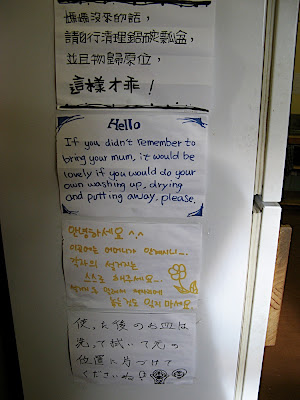 媽媽沒來的話，
請自行清理鍋碗瓢盆，
並且物歸原位，
這樣才乖！
Hello
If you didn't remember to
bring your mum, it would be
lovely if you would do your
own washing up, drying
and putting away, please.
안녕하세요 ^.^
이곳에는 어머니가 안계시니...
각자의 설거지는
스스로 해주세요...
설거지 후 제자리에
놓는것도 잊지 마세요.
使った後のお皿は
洗って拭いて元の
位置に片づけて
くださいね!!